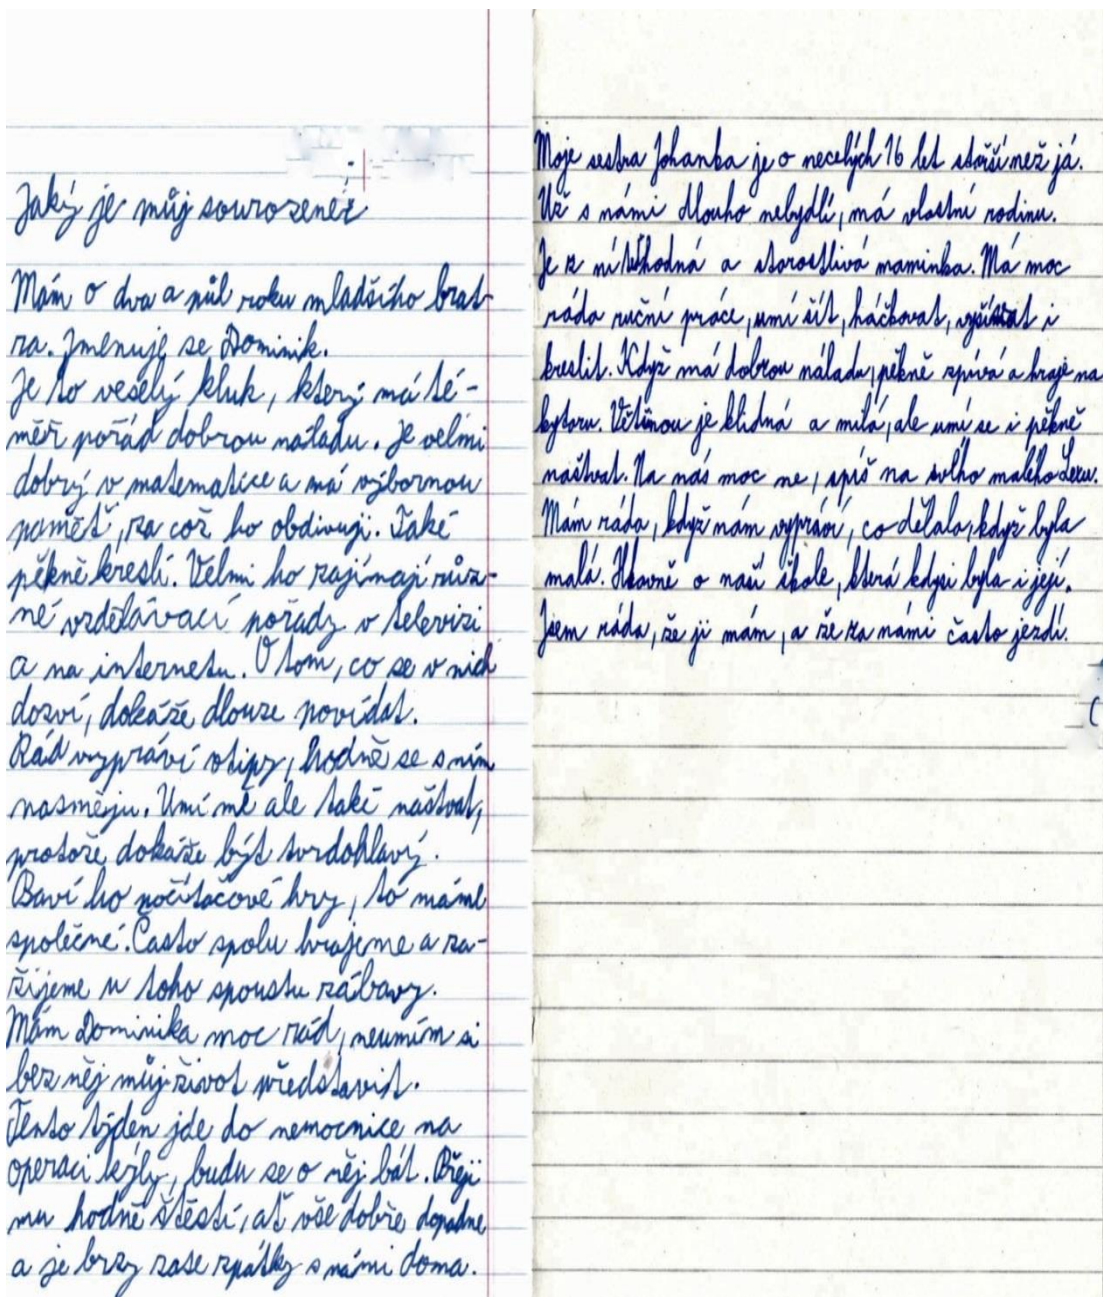 Jaký je můj sourozenec
Mám o dva a půl roku mladšího brat-
ra. Jmenuje se Dominik.
Je to veselý kluk, který má té-
měř pořád dobrou náladu. Je velmi
dobrý v matematice a má výbornou
paměť, za což ho obdivuji. Také
pěkně kreslí. Velmi ho zajímají růz-
né vzdělávací pořady v televizi
a na internetu. O tom, co se v nich
dozví, dokáže dlouze povídat.
Rád vypráví vtipy, hodně se s ním
nasměju. Umí mě ale také naštvat,
protože dokáže být tvrdohlavý.
Baví ho počítačové hry, to máme
společné. Často spolu hrajeme a za-
žijeme u toho spoustu zábavy.
Mám Dominika moc rád, neumím si
bez něj můj život představit.
Tento týden jde do nemocnice na
operaci kýly, budu se o něj bát. Přeji
mu hodně štěstí, ať vše dobře dopadne
a je brzy zase zpátky s námi doma.
Moje sestra Johanka je o necelých 16 let starší než já.
Už s námi dlouho nebydlí, má vlastní rodinu.
Je z ní hodná a starostlivá maminka. Má moc
ráda ruční práce, umí šít, háčkovat, vyšívat i
kreslit. Když má dobrou náladu, pěkně zpívá a hraje na
kytaru. Většinou je klidná a milá, ale umí se i pěkně
naštvat. Na nás moc ne, spíš na svého malého Lexu.
Mám ráda, když nám vypráví, co dělala, když byla
malá. Hlavně o naší škole, která kdysi byla i její.
Jsem ráda, že ji mám, a že za námi často jezdí.